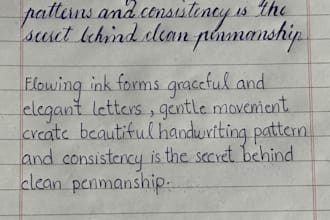 patterns and consistency is the
secret behind clean penmanship
Flowing ink forms graceful and
elegant letters , gentle movement
create beautiful handwriting pattern
and consistency is the secret behind
clean penmanship.